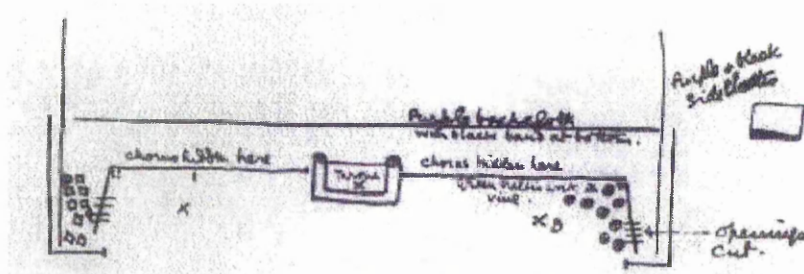 Purple + black
side cloths
Purple backcloth
with black band at bottom.
chorus hidden here
Throne
chorus hidden here
Green trellis work &
vine.
X
X B
openings
cut.